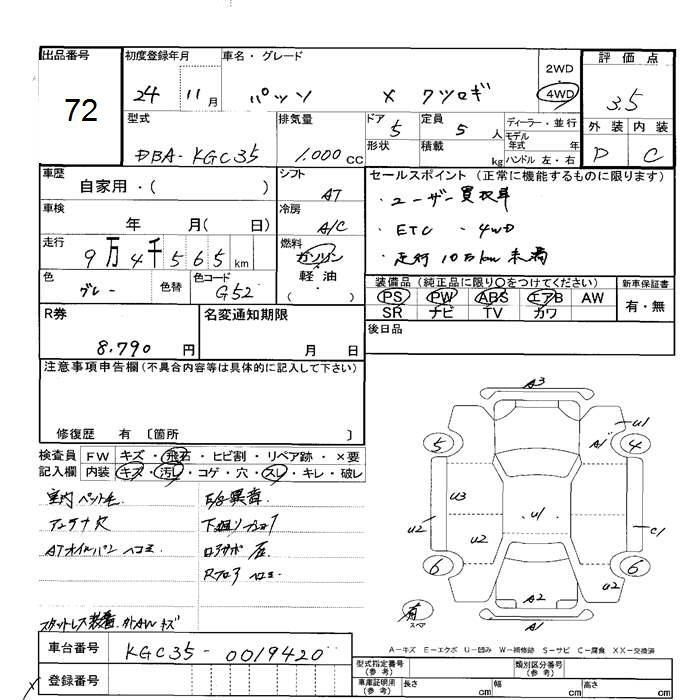 出品番号 初度登録年月 車名・グレード 2WD 評価点
72 24 11月 パッソ X クツロギ 4WD 3.5
型式 排気量 ドア 定員 ディーラー・並行 外装 内装
DBA-KGC35 1.000cc 5 5人 モデル年式 年 D C
形状 積載 kg ハンドル 左・右
車歴 シフト セールスポイント(正常に機能するものに限ります)
自家用・( ) AT ・ユーザー買取車
車検 冷房 ・ETC ・4WD
年 月( 日) A/C ・走行10万km未満
走行 燃料
9万4千565km ガソリン
軽油
( ・ )
色 色替 色コード 装備品(純正品に限り○をつけてください) 新車保証書
グレー G52 PS PW ABS エアB AW 有・無
SR ナビ TV カワ
R券 名変通知期限 後日品
8.790円 月 日
注意事項申告欄(不具合内容等は具体的に記入して下さい)
修復歴 有 〔箇所 〕
検査員 FW キズ・飛石・ヒビ割・リペア跡・×要
記入欄 内装 キズ・汚レ・コゲ・穴・スレ・キレ・破レ
室内ペット毛 E/g異音
アンテナ欠
ATオイルパンヘコミ
スタットレス装着
車台番号 KGC35-0019420
登録番号
A3
U1
A1
5
4
U3
U2
U2
U1
C1
6
6
U2
A2
A1
有
スペア
A-キズ E-エクボ U-凹み W-補修跡 S-サビ C-腐食 XX-交換済
型式指定番号(参考) 類別区分番号(参考)
車庫証明用(参考) 長さ cm 幅 cm 高さ cm